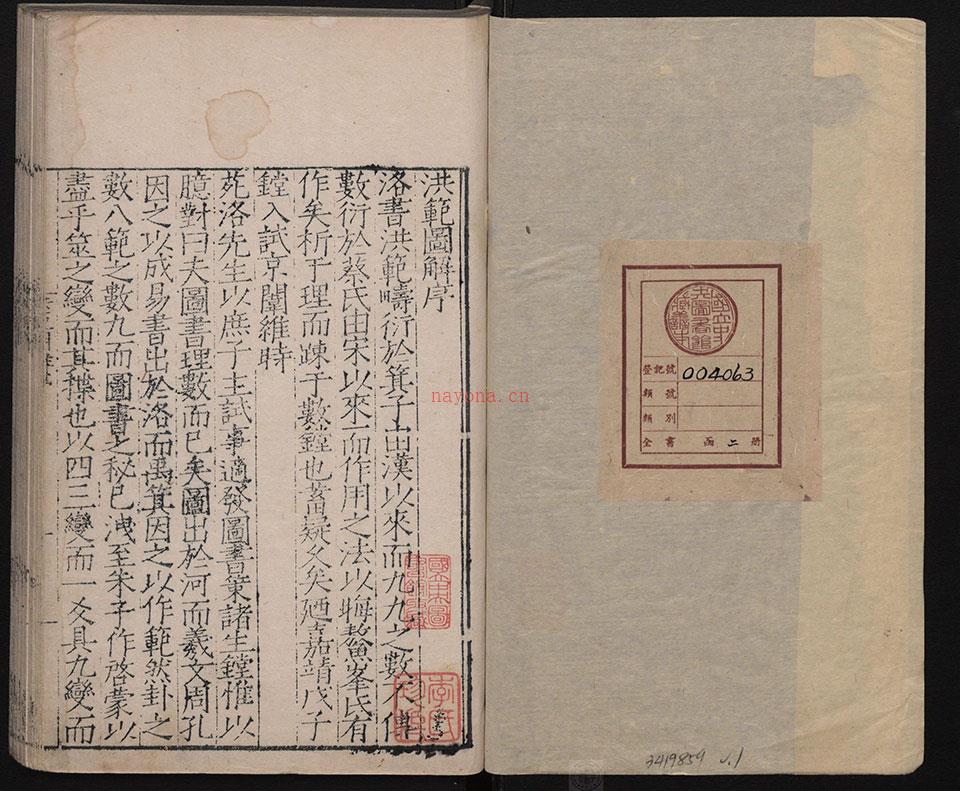 洪範圖解序
洛書洪範疇衍於箕子由漢以來而九九之數不傳
數衍於蔡氏由宋以來而作用之法以晦鰲峯氏有
作矣析于理而疎于數鏜也蓄疑久矣廼嘉靖戊子
鏜入試京闈維時
苑洛先生以庶子主試事適發圖書策諸生鏜惟以
臆對曰夫圖書理數而已矣圖出於河而羲文周孔
因之以成易書出於洛而禹箕因之以作範然卦之
數八範之數九而圖書之秘已洩至朱子作啓蒙以
盡乎筮之變而其揲也以四三變而一爻具九變而
nayona.cn
國立中央圖書館藏書
李氏
國立中央圖書館藏書
登記號 004063
類號
類別
全書 函 二 册
3419859 v.1